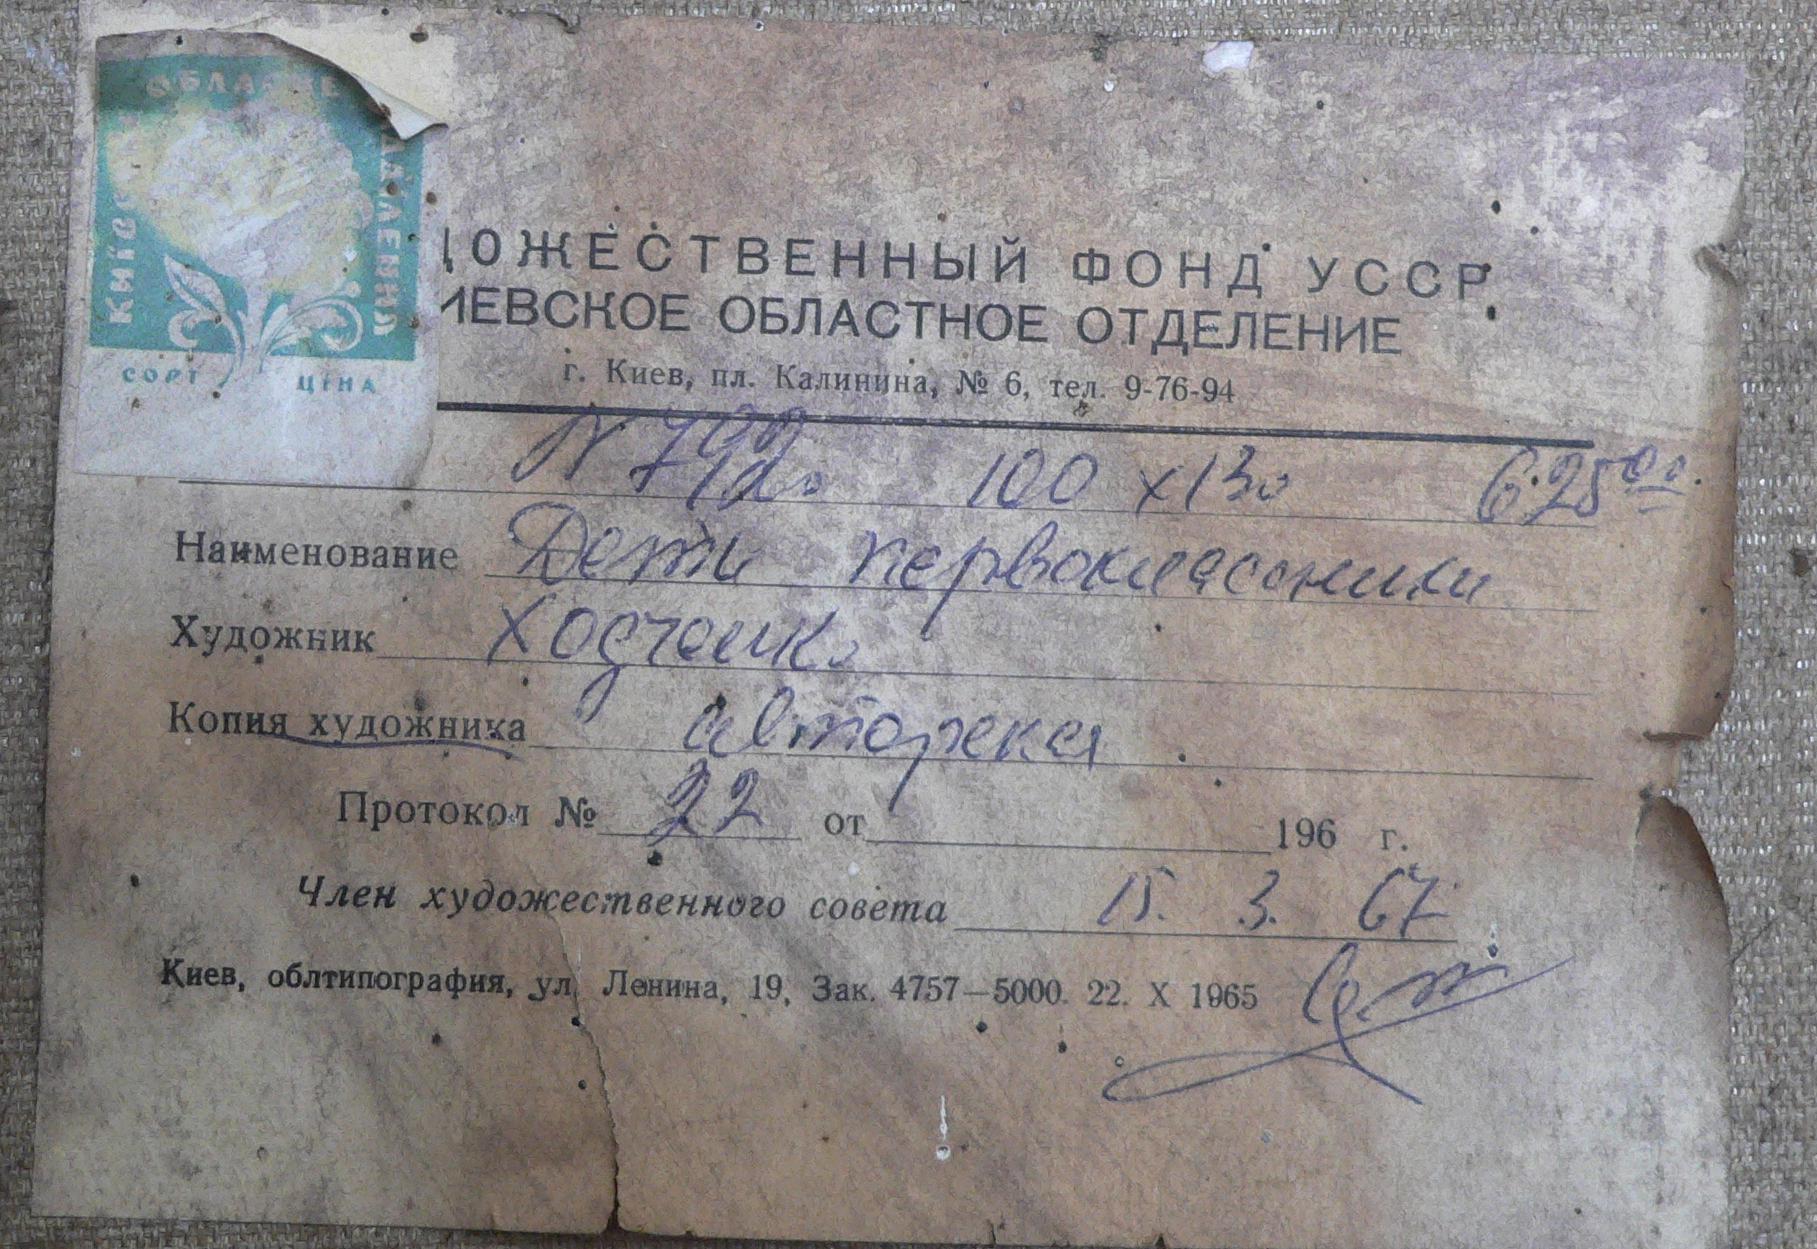 КИЇВ
ОБЛАС
ДІЛЕННЯ
СОРТ ЦІНА
ДОЖЕСТВЕННЫЙ ФОНД УССР
ИЕВСКОЕ ОБЛАСТНОЕ ОТДЕЛЕНИЕ
г. Киев, пл. Калинина, № 6, тел. 9-76-94
100 x 130 625 00
Наименование Дети первоклассники
Художник Ходченко
Копия художника авторская
Протокол № 22 от 196 г.
Член художественного совета 15. 3. 67
Киев, облтипография, ул. Ленина, 19, Зак. 4757—5000. 22. X 1965